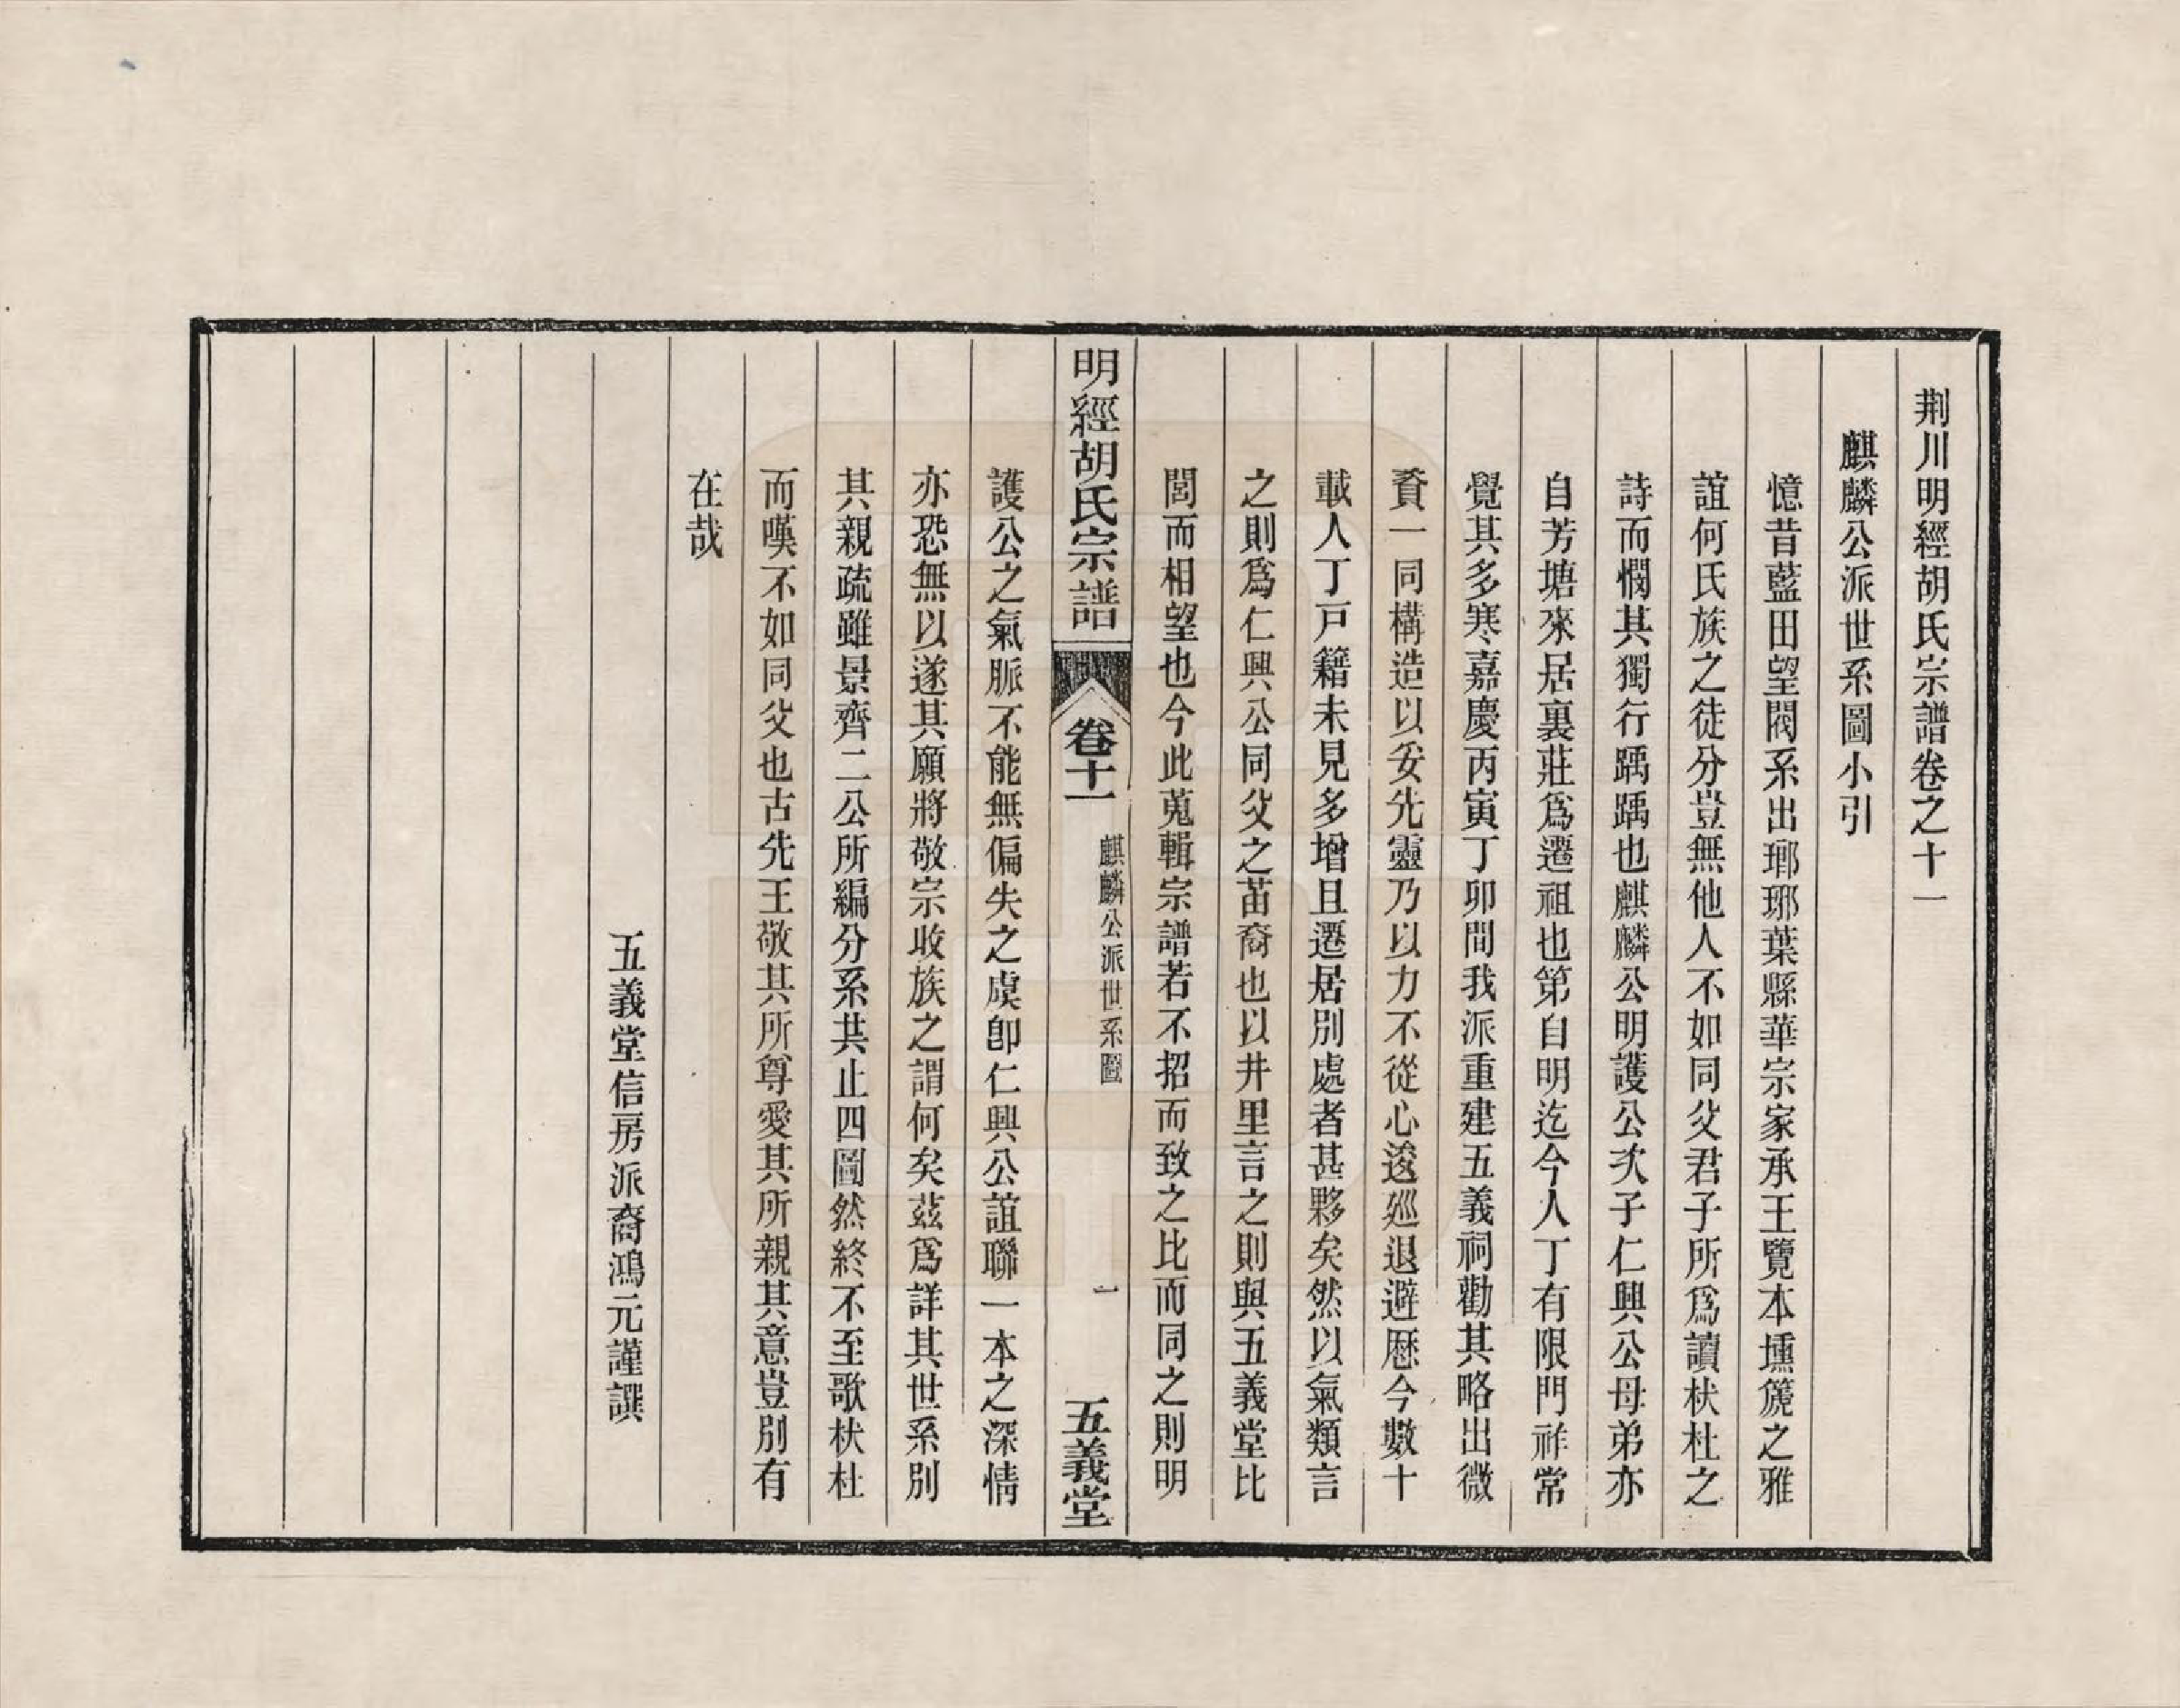 荆川明經胡氏宗譜卷之十一
麒麟公派世系圖小引
憶昔藍田望閥系出瑯琊葉縣華宗家承王覽本壎篪之雅
誼何氏族之徒分豈無他人不如同父君子所爲讀杕杜之
詩而憫其獨行踽踽也麒麟公明護公次子仁興公母弟亦
自芳塘來居裏莊爲遷祖也第自明迄今人丁有限門祚常
覺其多寒嘉慶丙寅丁卯間我派重建五義祠勸其略出微
賫一同構造以妥先靈乃以力不從心逡廵退避歷今數十
載人丁戸籍未見多增且遷居別處者甚夥矣然以氣類言
之則爲仁興公同父之苗裔也以井里言之則與五義堂比
閭而相望也今此蒐輯宗譜若不招而致之比而同之則明
明經胡氏宗譜 卷十一 麒麟公派世系圖 一 五義堂
護公之氣脈不能無偏失之虞卽仁興公誼聯一本之深情
亦恐無以遂其願將敬宗收族之謂何矣茲爲詳其世系別
其親疏雖景齊二公所編分系共止四圖然終不至歌杕杜
而嘆不如同父也古先王敬其所尊愛其所親其意豈別有
在哉
五義堂信房派裔鴻元謹譔